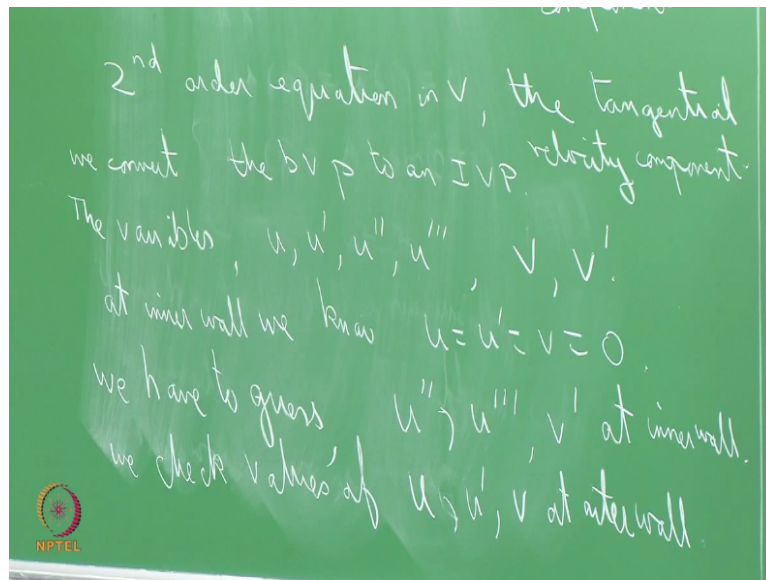 2nd order equation in v, the tangential
velocity component.
we convert the bvp to an IVP.
The variables, u, u', u'', u''', v, v'.
at inner wall we know u = u' = v = 0.
we have to guess, u'', u''', v' at inner wall.
we check values of u, u', v at outer wall
NPTEL